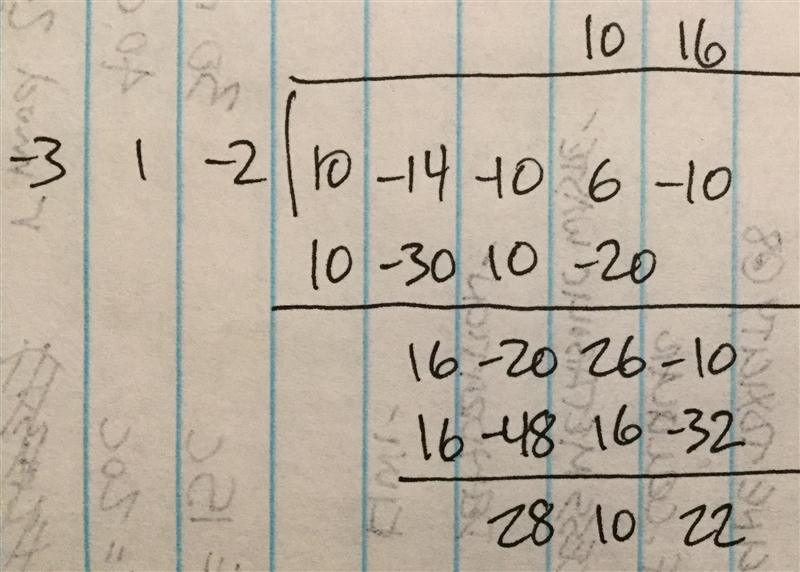 10 16
-3 1 -2 10 -14 -10 6 -10
10 -30 10 -20
16 -20 26 -10
16 -48 16 -32
28 10 22